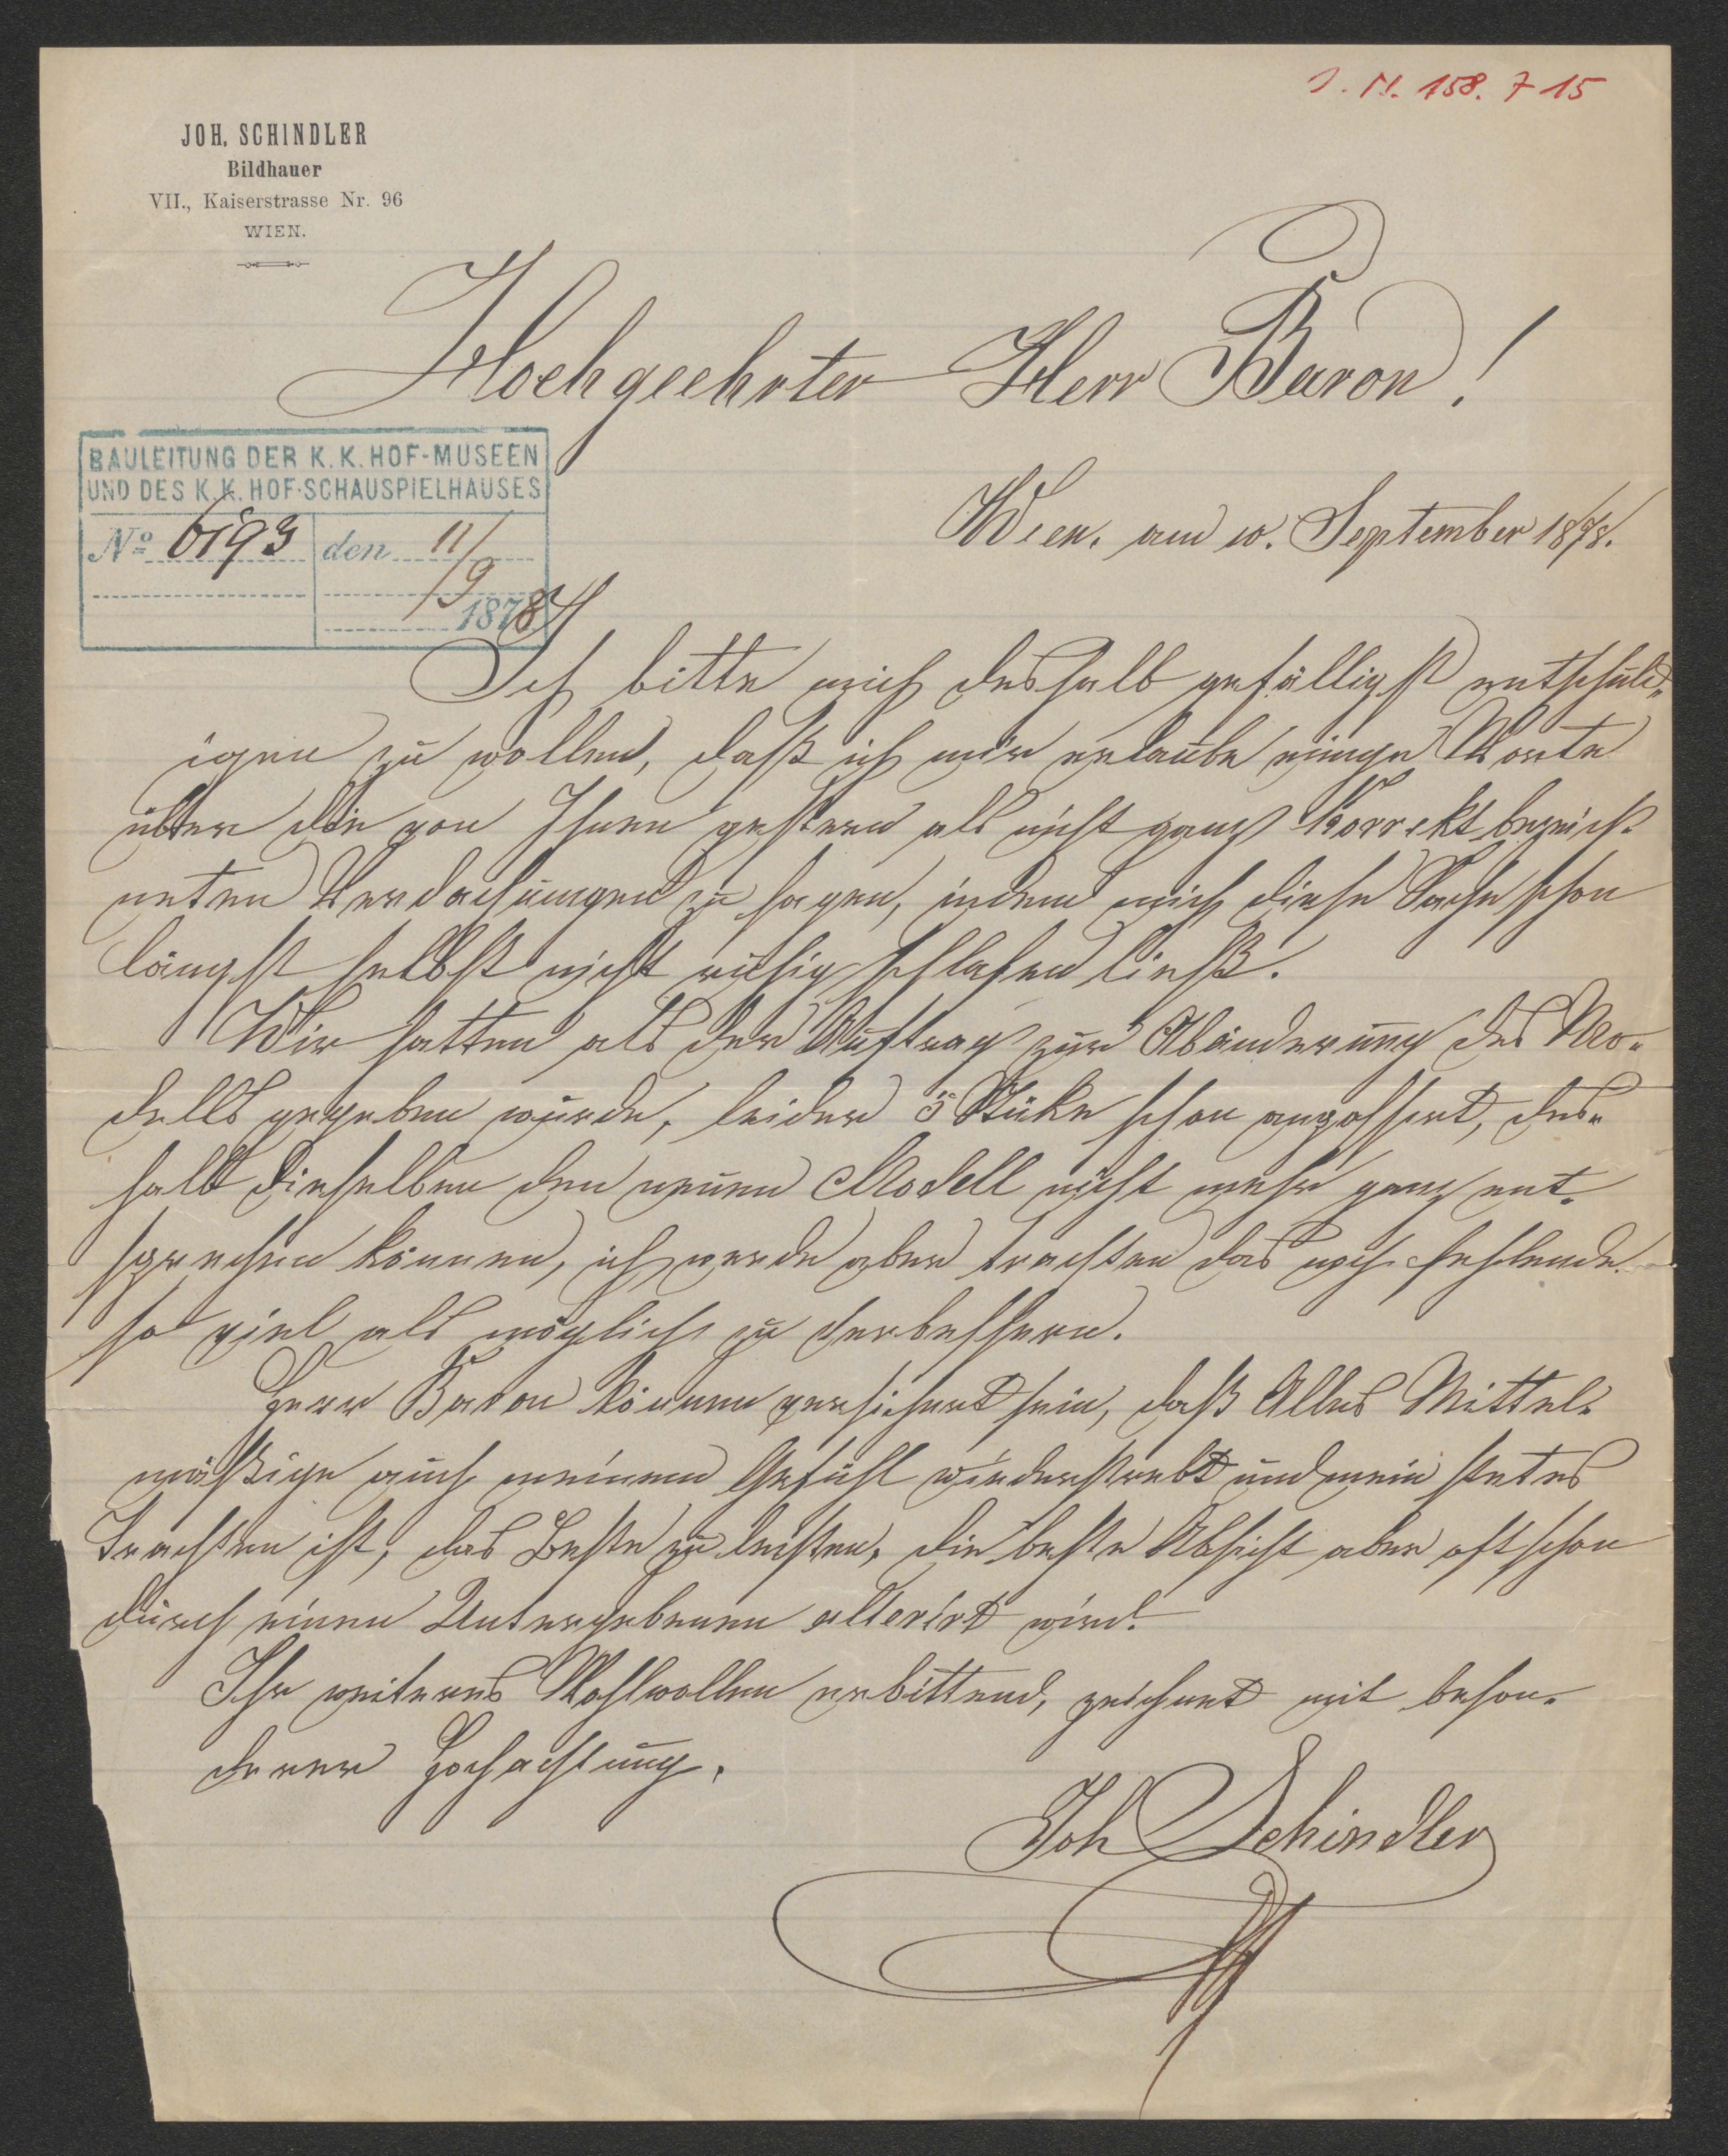 J. N. 158.715
JOH. SCHINDLER
Bildhauer
VII., Kaiserstrasse Nr. 96
WIEN.
Hochgeehrter Herr Baron!
BAULEITUNG DER K. K. HOF-MUSEEN
UND DES K. K. HOF-SCHAUSPIELHAUSES
No 6193 den 11/9
1878
Wien, am 10. September 1878.
Ich bitte mich deshalb gefälligst entschuld„
igen zu wollen, daß ich mir erlaube einige Worte
über die von Ihnen gestern als nicht ganz korrekt bezeich-
neten Verdachungen zu sagen, indem mich diese Sache schon
längst selbst nicht ruhig schlafen ließ.
Wir hatten als der Auftrag zur Abänderung des Mo„
dells gegeben wurde, leider 5 Stücke schon angossirt, des„
halb dieselben dem neuen Modell nicht mehr ganz ent-
sprechen können, ich werde aber trachten das noch fehlende
so viel als möglich zu verbessern.
Herr Baron können versichert sein, daß Alles Mittel-
mäßige auch meinem Gefühl wiederstrebt und mein stetes
Trachten ist, das Beste zu leisten, die beste Absicht aber oft schon
durch einen Untergebenen alterirt wird.
Ihr weiteres Wohlwollen erbittend, zeichnet mit beson-
derer Hochachtung,
Joh Schindler